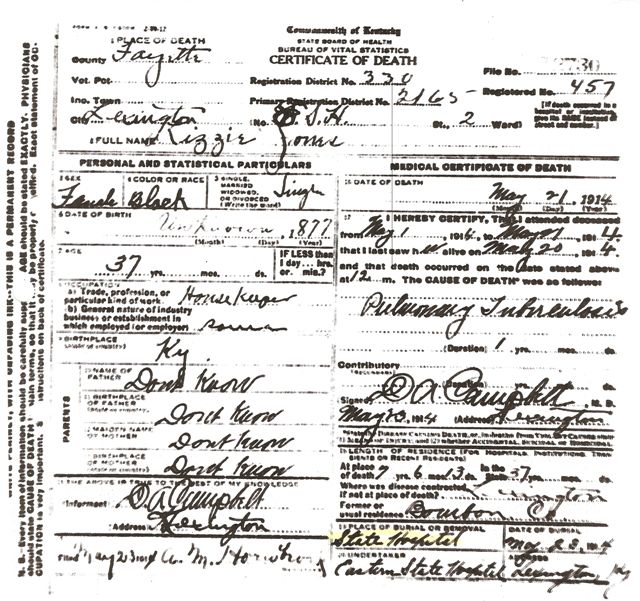 Commonwealth of Kentucky
STATE BOARD OF HEALTH
BUREAU OF VITAL STATISTICS
CERTIFICATE OF DEATH
1 PLACE OF DEATH
County Fayette
Vot. Pct.
Inc. Town
City Lexington
Registration District No. 330
Primary Registration District No. 2165
(No. E S. H. St., 2 Ward)
File No.
Registered No. 457
[If death occurred in a hospital or institution, give its NAME instead of street and number.]
2 FULL NAME Lizzie Jones
PERSONAL AND STATISTICAL PARTICULARS
3 SEX Female
4 COLOR OR RACE Black
5 SINGLE, MARRIED, WIDOWED, OR DIVORCED (Write the word) Single
6 DATE OF BIRTH
Unknown 1877
(Month) (Day) (Year)
7 AGE
37 yrs. mos. ds.
IF LESS than 1 day... hrs. or min.?
8 OCCUPATION
a: Trade, profession, or particular kind of work. Housekeeper
b) General nature of industry business or establishment in which employed (or employer)
9 BIRTHPLACE
(State or country) Ky.
PARENTS
10 NAME OF FATHER Dont Know
11 BIRTHPLACE OF FATHER (State or country) Dont Know
12 MAIDEN NAME OF MOTHER Dont Know
13 BIRTHPLACE OF MOTHER (State or country) Dont Know
14 THE ABOVE IS TRUE TO THE BEST OF MY KNOWLEDGE
Informant D. A. Campbell
Address Lexington
Filed May 23 1914 A. M.
MEDICAL CERTIFICATE OF DEATH
16 DATE OF DEATH
May 21, 1914
(Month) (Day) (Year)
17 I HEREBY CERTIFY, That I attended deceased
from May 1, 1914, to May 21 1914
that I last saw her alive on May 20 1914
and that death occurred on the date stated above
at 12 m. The CAUSE OF DEATH was as follows:
Pulmonary Tuberculosis
(Duration) 1 yrs. mos. ds.
Contributory
(Duration) yrs. mos. ds.
Signed D A Campbell M. D.
May 23, 1914 (Address) Lexington
18 LENGTH OF RESIDENCE (FOR HOSPITALS, INSTITUTIONS, TRANSIENTS OR RECENT RESIDENTS)
At place of death 7 yrs. 6 mos. 13 ds. In the State 37 yrs.
Where was disease contracted, if not at place of death? Lexington
Former or usual residence Bourbon Co
19 PLACE OF BURIAL OR REMOVAL
State Hospital
DATE OF BURIAL
May 23, 1914
20 UNDERTAKER
Eastern State Hospital
ADDRESS
Lexington, Ky
N. B.-Every item of information should be carefully supplied. AGE should be stated EXACTLY. PHYSICIANS
should state CAUSE OF DEATH in plain terms, so that it may be properly classified. Exact statement of OCCUPATION is very important. See instructions on back of certificate.